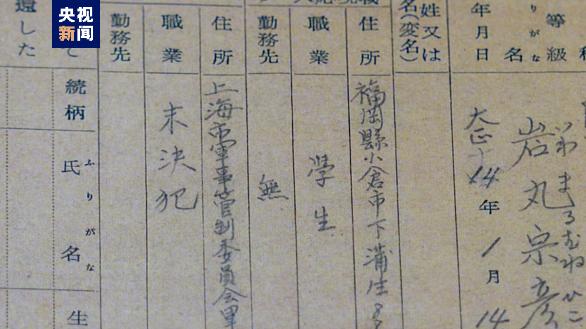 央视新闻
等級
りがな
名
いわまるむねひこ
岩丸宗彦
年月日
大正14年1月14
姓又は
名(変名)
住所
福岡縣小倉市下蒲生
職業
學生
勤務先
無
住所
上海市軍事管制委員会
職業
未決犯
勤務先
て
続柄
ふりがな
氏名
生
還した